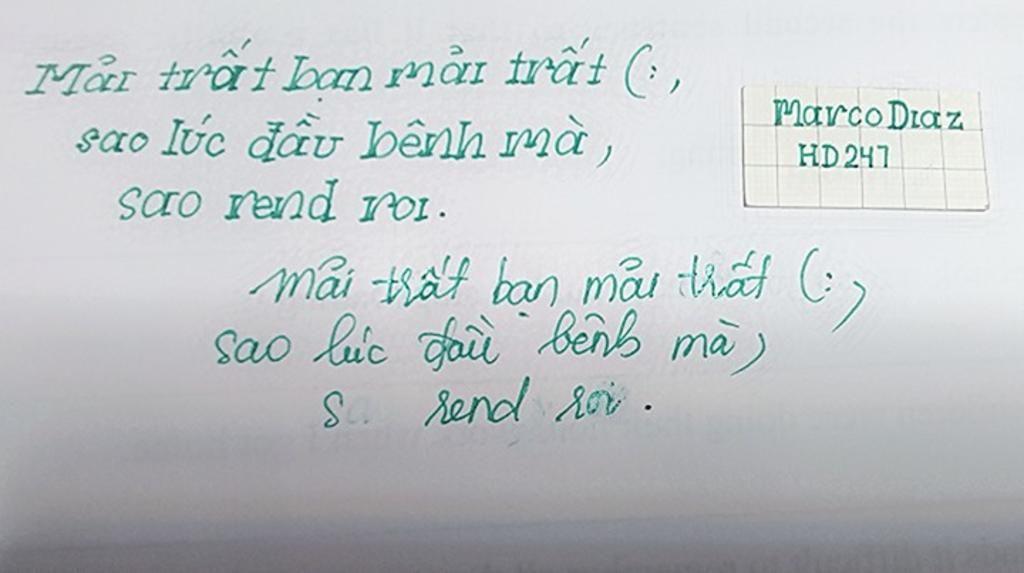 Mải trất bạn mải trất (:,
sao lúc đầu bênh mà,
sao rend roi.
Marco Diaz
HD247
mải trất bạn mải trất (:,
sao lúc đầu bênh mà,
s rend roi.